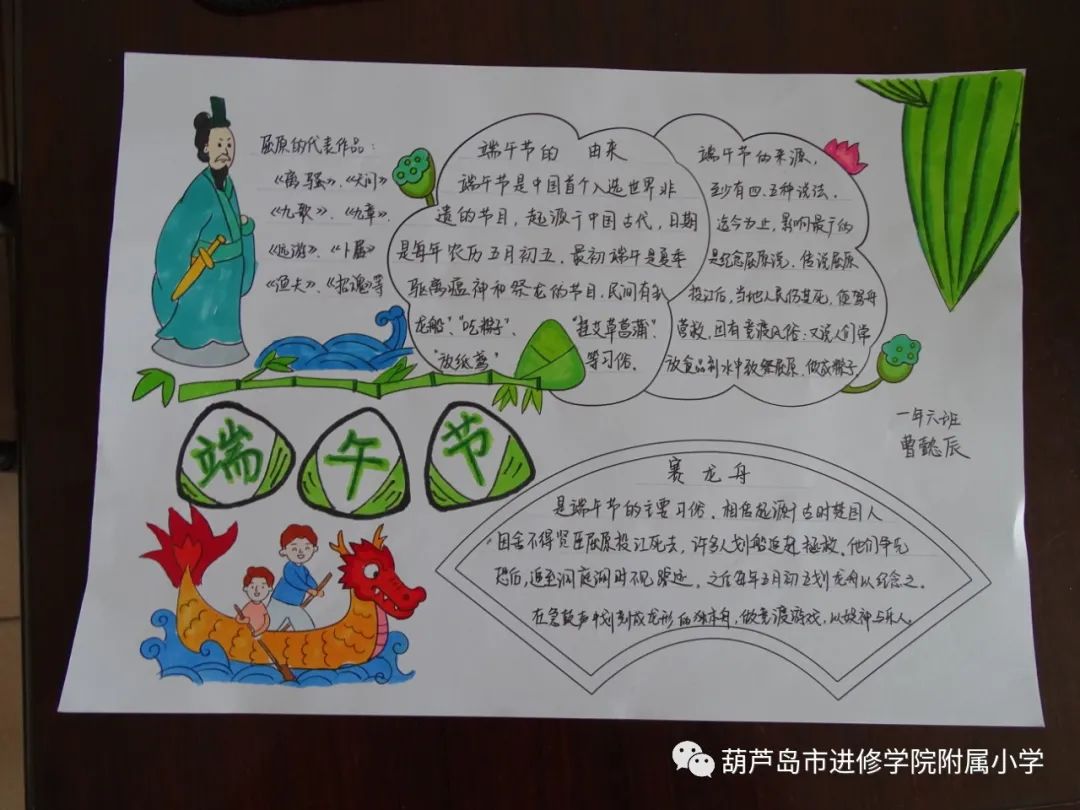 屈原的代表作品：
《离骚》、《天问》
《九歌》、《九章》、
《远游》、《卜居》
《渔夫》、《招魂》等
端午节的 由来
端午节是中国首个入选世界非
遗的节目，起源于中国古代，日期
是每年农历五月初五，最初端午是夏季
驱离瘟神和祭龙的节目，民间有
龙船"、"吃粽子"、 "挂艾草菖蒲"
"放纸鸢" 等习俗。
端午节的来源，
至少有四、五种说法，
迄今为止，影响最广的
是纪念屈原说，传说屈原
投江后，当地人民伤其死，便驾舟
营救，因有竞渡风俗；又说人们常
放食品到水中致祭屈原，做成粽子
一年六班
曹懿辰
端午节
赛龙舟
是端午节的主要习俗，相传起源于古时楚国人
因舍不得贤臣屈原投江死去，许多人划船追赶拯救，他们争先
恐后，追至洞庭湖时不见踪迹，之后每年五月初五划龙舟以纪念之。
在急鼓声中划刻成龙形的独木舟，做竞渡游戏，以娱神与乐人。
葫芦岛市进修学院附属小学